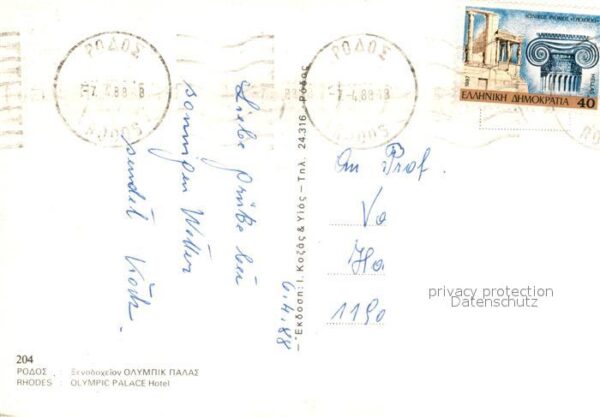 ΡΟΔΟΣ
-7.4.88 18
ΡΟΔΟΣ
ΡΟΔΟΣ
7-4.88 18
ΡΟΔΟΣ
ΕΛΛΗΝΙΚΗ ΔΗΜΟΚΡΑΤΙΑ 40
6.4.88
Liebe Grüße bei
sonnigem Wetter
sendet
Έκδοση: Ι. Κοζάς & Υιός – Τηλ. 24.316 - Ρόδος
An Prof.
Va
Ha
1190
privacy protection
Datenschutz
204
ΡΟΔΟΣ : Ξενοδοχείον ΟΛΥΜΠΙΚ ΠΑΛΑΣ
RHODES : OLYMPIC PALACE Hotel